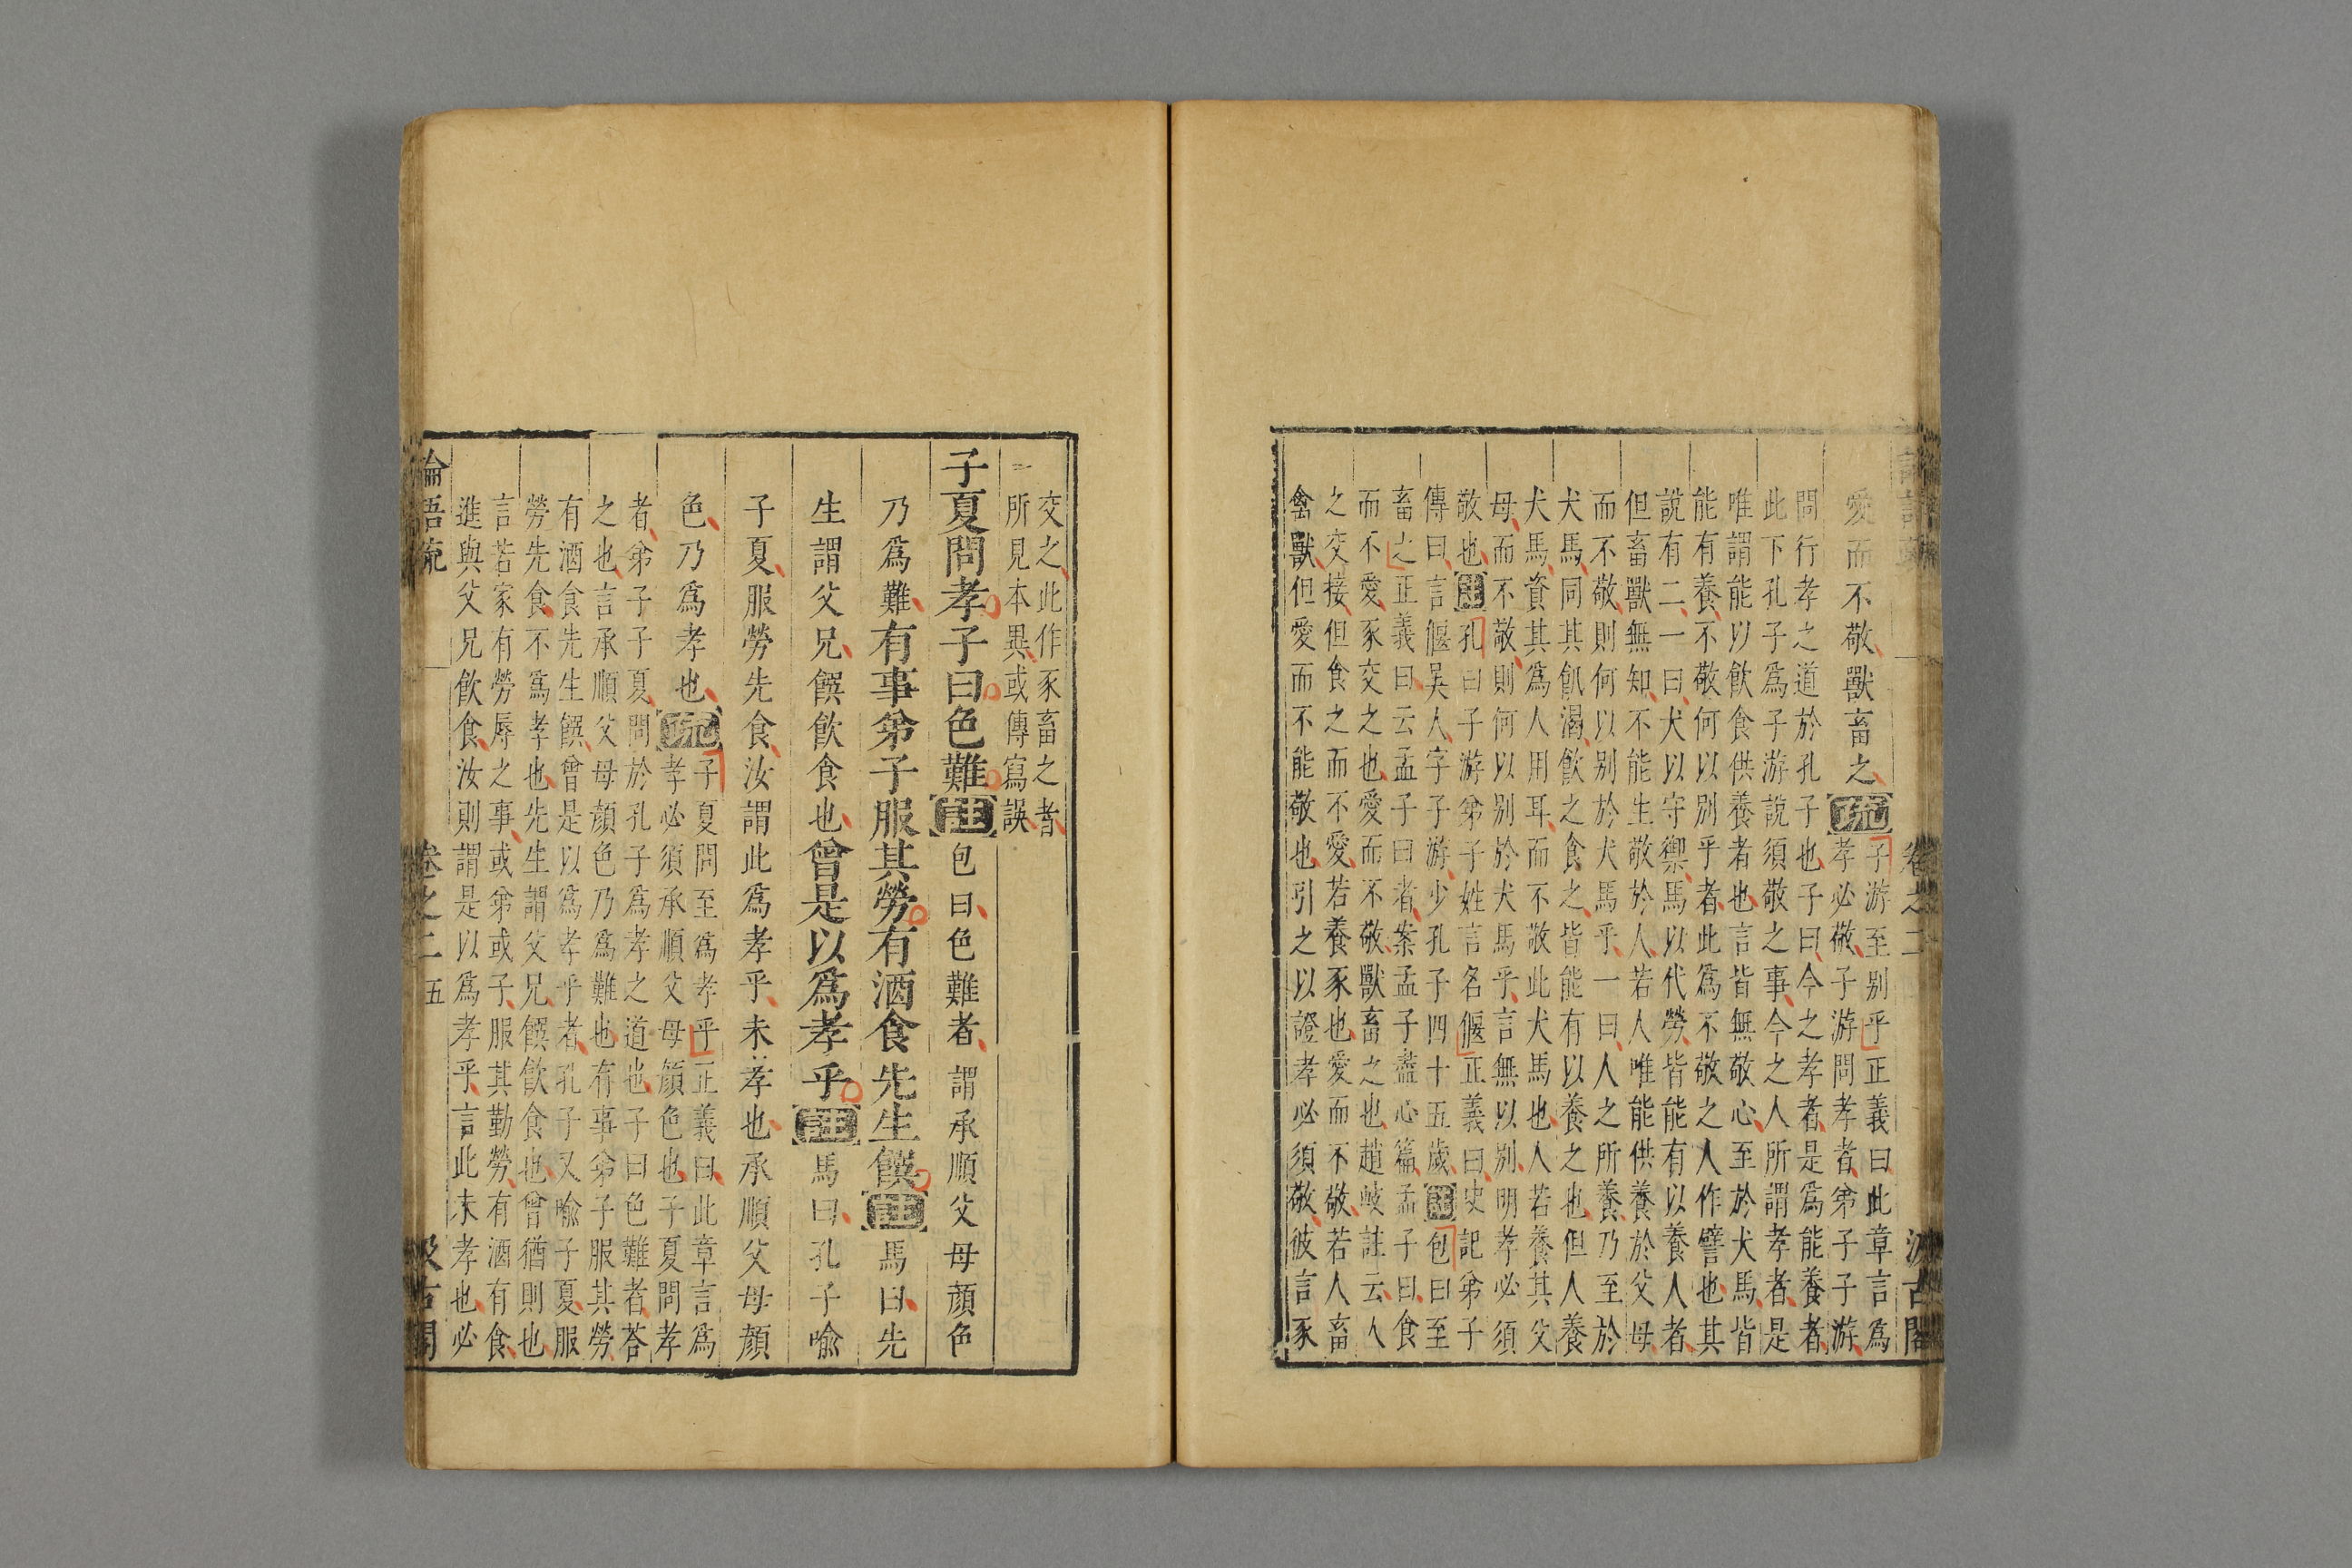 卷之二 汲古閣
愛而不敬獸畜之疏子游至別乎正義曰此章言爲
孝必敬子游問孝者弟子子游
問行孝之道於孔子也子曰今之孝者是爲能養者
此下孔子爲子游說須敬之事今之人所謂孝者是
唯謂能以飲食供養者也言皆無敬心至於犬馬皆
能有養不敬何以別乎者此爲不敬之人作譬也其
說有二一曰犬以守禦馬以代勞皆能有以養人者
但畜獸無知不能生敬於人若人唯能供養於父母
而不敬則何以別於犬馬乎一曰人之所養乃至於
犬馬同其飢渴飲之食之皆能有以養之也但人養
犬馬資其爲人用耳而不敬此犬馬也人若養其父
母而不敬則何以別於犬馬乎言無以別明孝必須
敬也註孔曰子游弟子姓言名偃正義曰史記弟子
傳曰言偃吳人字子游少孔子四十五歲註包曰至
畜之正義曰云孟子曰者案孟子盡心篇孟子曰食
而不愛豕交之也愛而不敬獸畜之也趙岐註云人
之交接但食之而不愛若養豕也愛而不敬若人畜
禽獸但愛而不能敬也引之以證孝必須敬彼言豕
交之此作豕畜之者
所見本異或傳寫誤
子夏問孝子曰色難註包曰色難者謂承順父母顏色
乃爲難有事弟子服其勞有酒食先生饌註馬曰先
生謂父兄饌飲食也曾是以爲孝乎註馬曰孔子喻
子夏服勞先食汝謂此爲孝乎未孝也承順父母顏
色乃爲孝也疏子夏問至爲孝乎正義曰此章言爲
孝必須承順父母顏色也子夏問孝
者弟子子夏問於孔子爲孝之道也子曰色難者荅
之也言承順父母顏色乃爲難也有事弟子服其勞
有酒食先生饌曾是以爲孝乎者孔子又喻子夏服
勞先食不爲孝也先生謂父兄饌飲食也曾猶則也
言若家有勞辱之事或弟或子服其勤勞有酒有食
進與父兄飲食汝則謂是以爲孝乎言此未孝也必
論語疏 卷之二 五 汲古閣